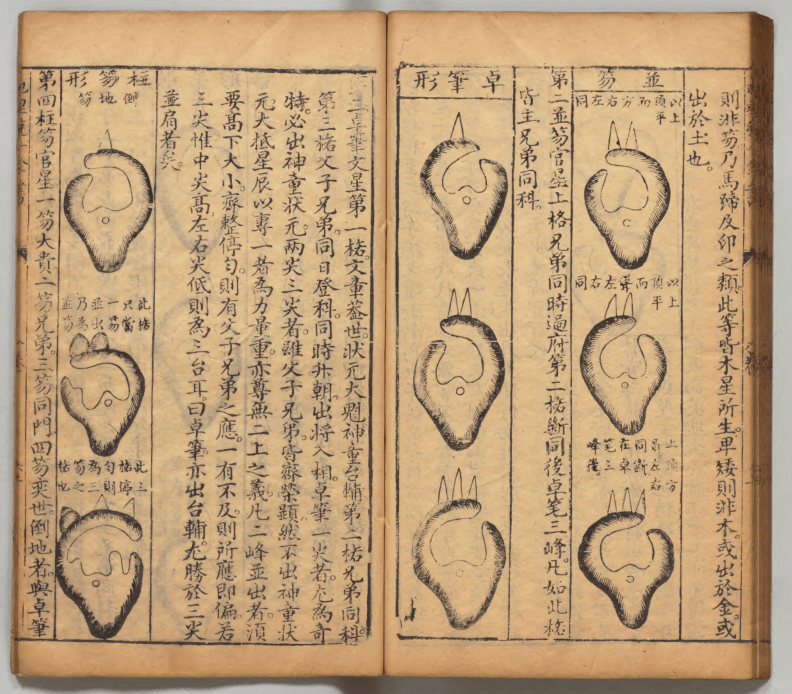 則非笏乃馬蹄反印之類此等皆木星所生卑矮則非木或出於金或
出於土也
並笏
以上
頂平
而方右左同
以上
頂平
而蕚左右同
上頂方
左右
同斷
在卓
笔三
峰後
第二並笏官星上格兄弟同時過府第二格斷同後卓笔三峰凡如此格
皆主兄弟同科
卓筆形
三卓筆文星第一格文章蓋世狀元大魁神童台輔第二格兄弟同科
第三格父子兄弟同日登科同時升朝出將入相卓筆一尖者尤為奇
特必出神童狀元兩尖三尖者雖父子兄弟皆齊榮顯然不出神童狀
元大抵星辰以專一者為力量重亦尊無二上之義凡二峰並出者須
要髙下大小齊整停匀則有父子兄弟之應一有不及則所應即偏若
三尖惟中尖髙左右尖低則為三台耳曰卓筆亦出台輔尤勝於三尖
並肩者矣
笏形
倒地笏
此格
只當
一笏
並出
乃為
並笏
此三
格停
匀則
為三
笏之
格也
第四枉笏官星一笏大貴二笏兄弟三笏同門四笏奕世倒地者與卓筆